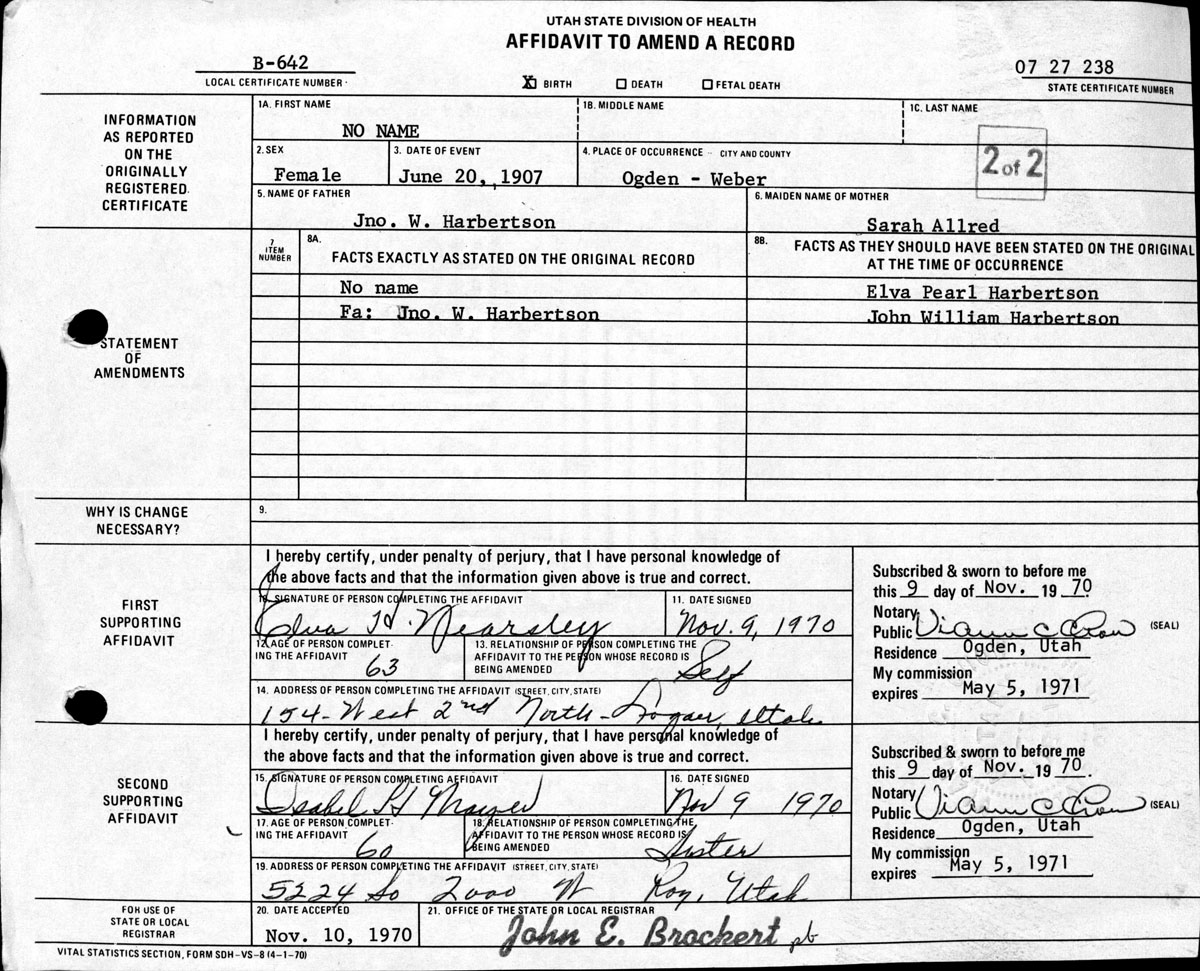 UTAH STATE DIVISION OF HEALTH
AFFIDAVIT TO AMEND A RECORD
B-642
LOCAL CERTIFICATE NUMBER
X BIRTH DEATH FETAL DEATH
07 27 238
STATE CERTIFICATE NUMBER
INFORMATION
AS REPORTED
ON THE
ORIGINALLY
REGISTERED
CERTIFICATE
1A. FIRST NAME
NO NAME
1B. MIDDLE NAME
1C. LAST NAME
2. SEX
Female
3. DATE OF EVENT
June 20, 1907
4. PLACE OF OCCURRENCE - CITY AND COUNTY
Ogden - Weber
2 of 2
5. NAME OF FATHER
Jno. W. Harbertson
6. MAIDEN NAME OF MOTHER
Sarah Allred
STATEMENT
OF
AMENDMENTS
7
ITEM
NUMBER
8A.
FACTS EXACTLY AS STATED ON THE ORIGINAL RECORD
8B.
FACTS AS THEY SHOULD HAVE BEEN STATED ON THE ORIGINAL
AT THE TIME OF OCCURRENCE
No name
Elva Pearl Harbertson
Fa: Jno. W. Harbertson
John William Harbertson
WHY IS CHANGE
NECESSARY?
9.
FIRST
SUPPORTING
AFFIDAVIT
I hereby certify, under penalty of perjury, that I have personal knowledge of
the above facts and that the information given above is true and correct.
10. SIGNATURE OF PERSON COMPLETING THE AFFIDAVIT
Elva H. Nearsley
11. DATE SIGNED
Nov. 9, 1970
12. AGE OF PERSON COMPLET-
ING THE AFFIDAVIT
63
13. RELATIONSHIP OF PERSON COMPLETING THE
AFFIDAVIT TO THE PERSON WHOSE RECORD IS
BEING AMENDED
Self
14. ADDRESS OF PERSON COMPLETING THE AFFIDAVIT (STREET, CITY, STATE)
154-West 2nd North - Logan, Utah
Subscribed & sworn to before me
this 9 day of Nov. 19 70.
Notary
Public (SEAL)
Residence Ogden, Utah
My commission
expires May 5, 1971
SECOND
SUPPORTING
AFFIDAVIT
I hereby certify, under penalty of perjury, that I have personal knowledge of
the above facts and that the information given above is true and correct.
15. SIGNATURE OF PERSON COMPLETING AFFIDAVIT
Isabel H
16. DATE SIGNED
Nov 9 1970
17. AGE OF PERSON COMPLET-
ING THE AFFIDAVIT
60
18. RELATIONSHIP OF PERSON COMPLETING THE
AFFIDAVIT TO THE PERSON WHOSE RECORD IS
BEING AMENDED
Sister
19. ADDRESS OF PERSON COMPLETING THE AFFIDAVIT (STREET, CITY, STATE)
5224 So 2000 W Roy, Utah
Subscribed & sworn to before me
this 9 day of Nov. 19 70.
Notary
Public (SEAL)
Residence Ogden, Utah
My commission
expires May 5, 1971
FOR USE OF
STATE OR LOCAL
REGISTRAR
20. DATE ACCEPTED
Nov. 10, 1970
21. OFFICE OF THE STATE OR LOCAL REGISTRAR
John E. Brockert pb
VITAL STATISTICS SECTION, FORM SDH-VS-8 (4-1-70)